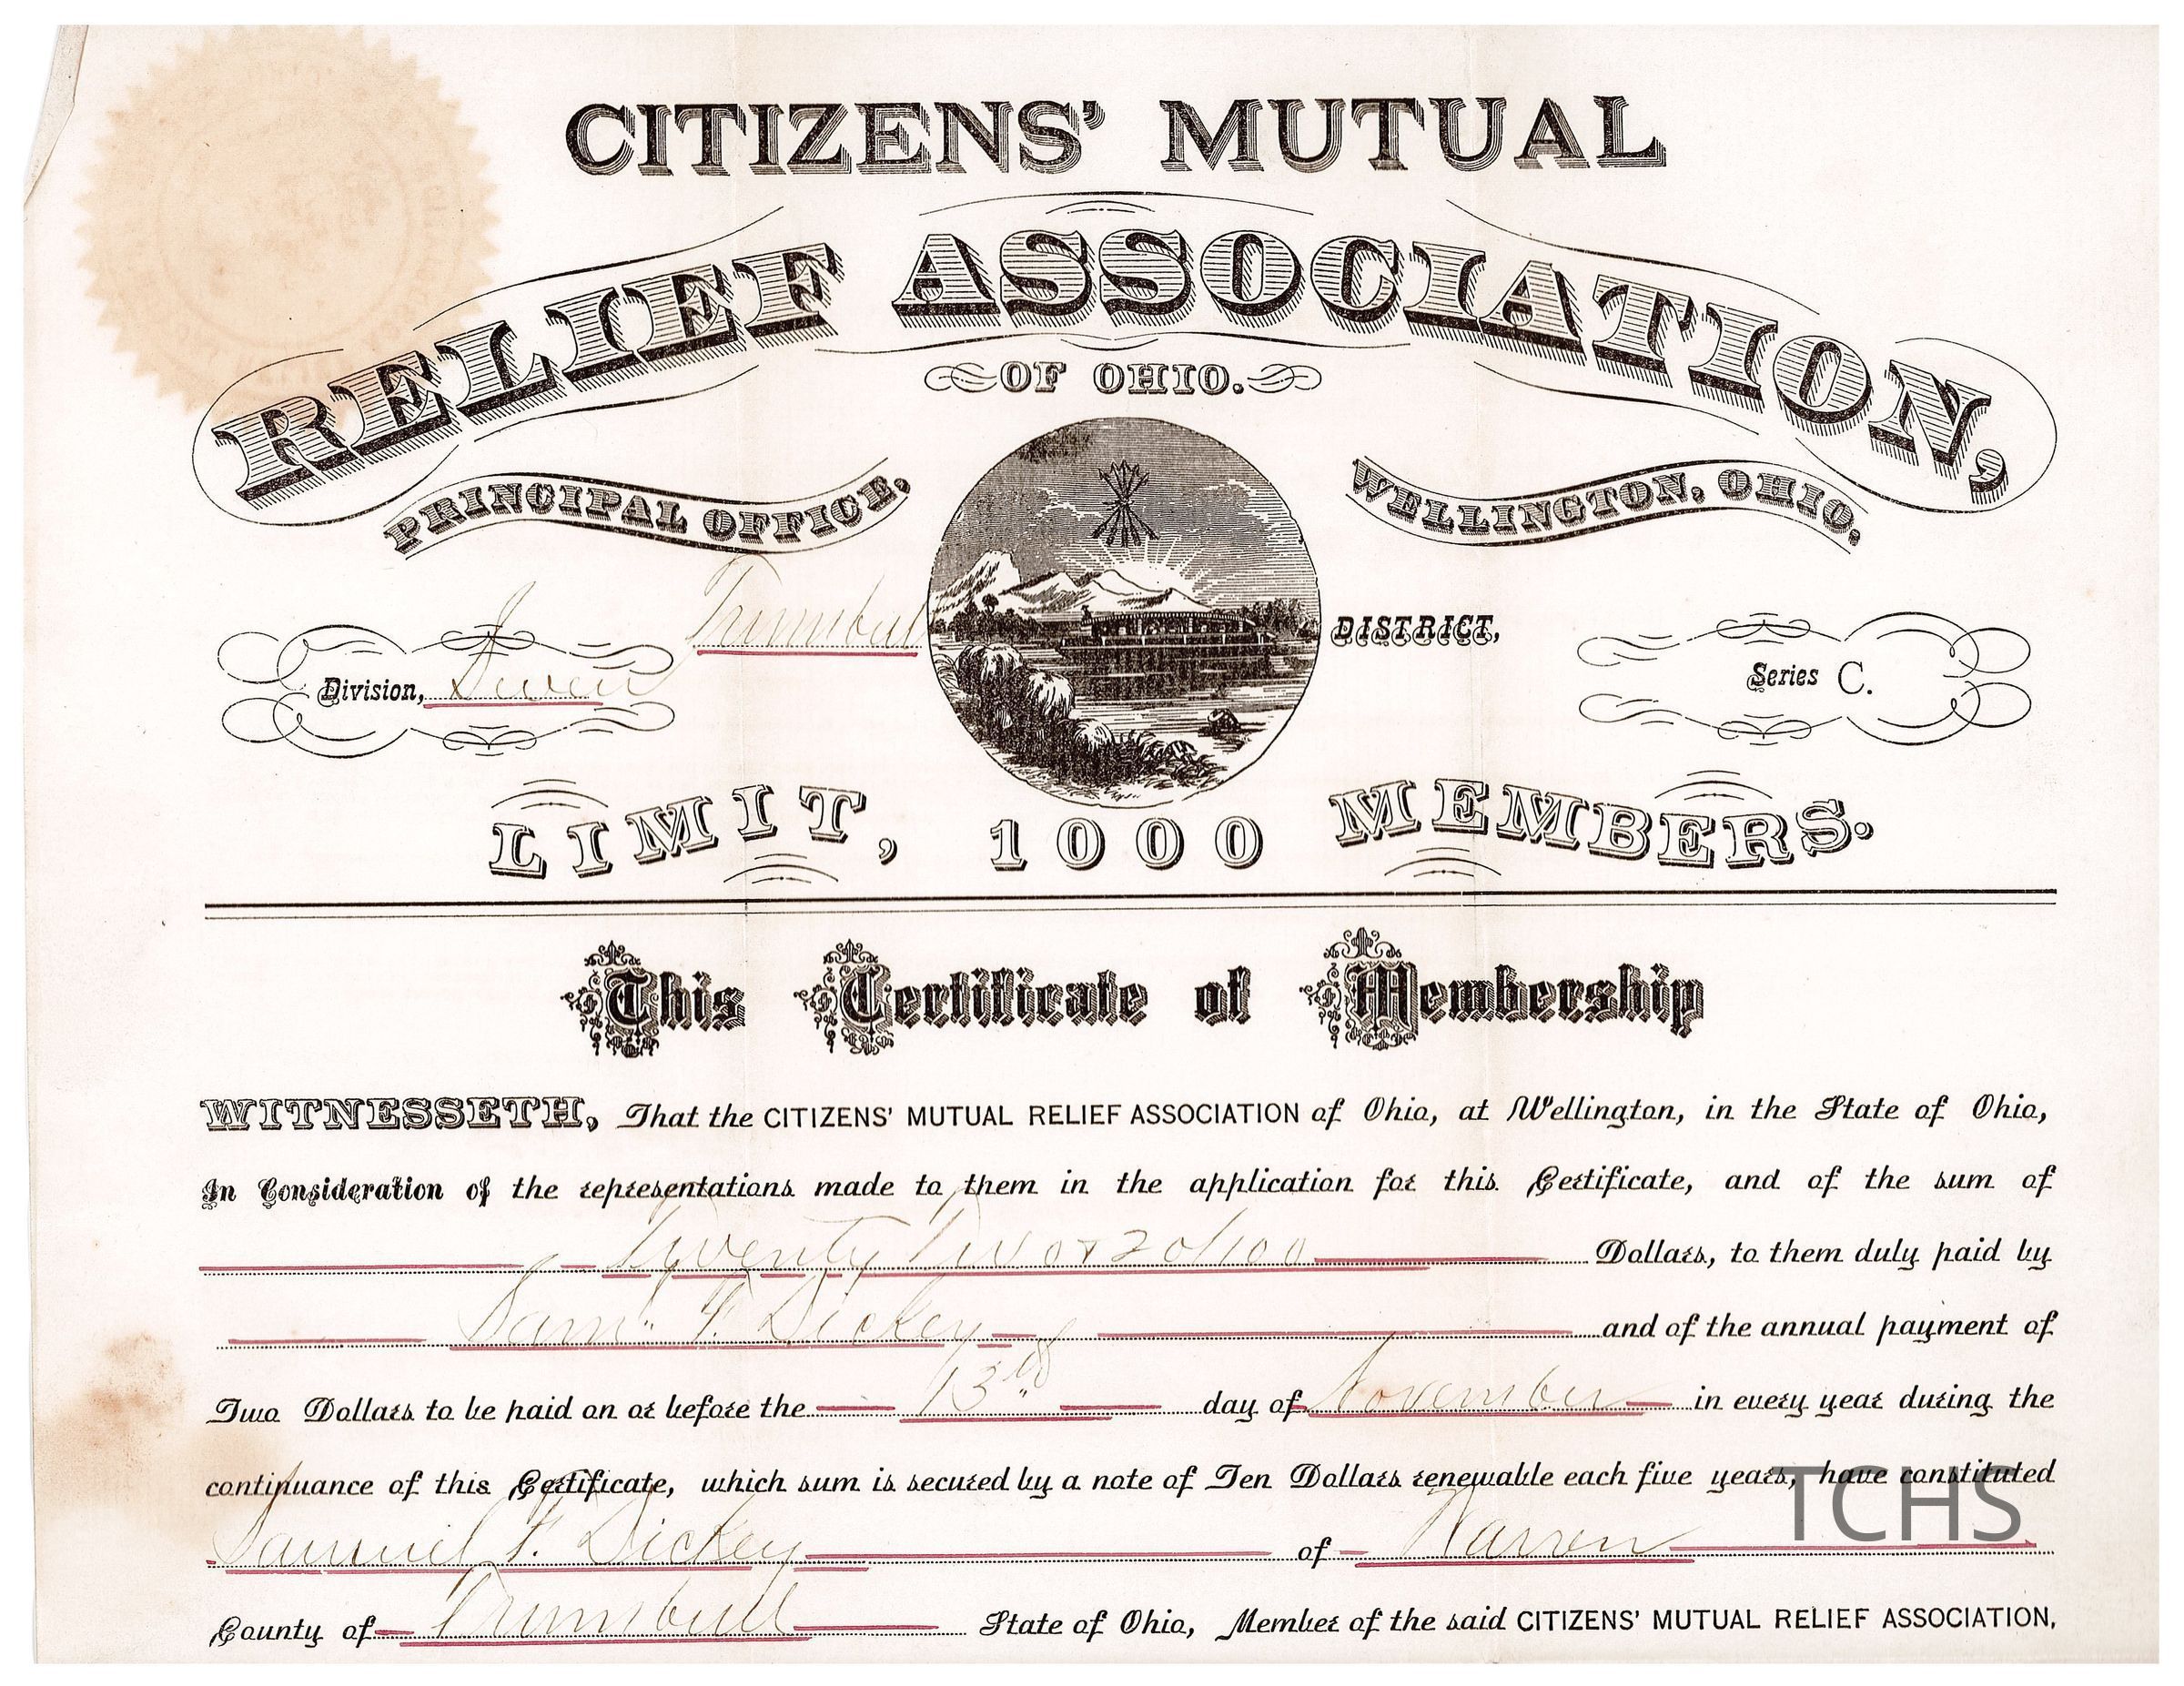 CITIZENS' MUTUAL
RELIEF ASSOCIATION,
OF OHIO.
PRINCIPAL OFFICE, WELLINGTON, OHIO.
Trumbull DISTRICT,
Division, Seven Series C.
LIMIT, 1000 MEMBERS.
This Certificate of Membership
WITNESSETH, That the CITIZENS' MUTUAL RELIEF ASSOCIATION of Ohio, at Wellington, in the State of Ohio,
In Consideration of the representations made to them in the application for this Certificate, and of the sum of
Twenty Two & 20/100 Dollars, to them duly paid by
Sam'' F. Dickey and of the annual payment of
Two Dollars to be paid on or before the 13th day of November in every year during the
continuance of this Certificate, which sum is secured by a note of Ten Dollars renewable each five years, have constituted
TCHS
Samuel F. Dickey of Warren
County of Trumbull State of Ohio, Member of the said CITIZENS' MUTUAL RELIEF ASSOCIATION,